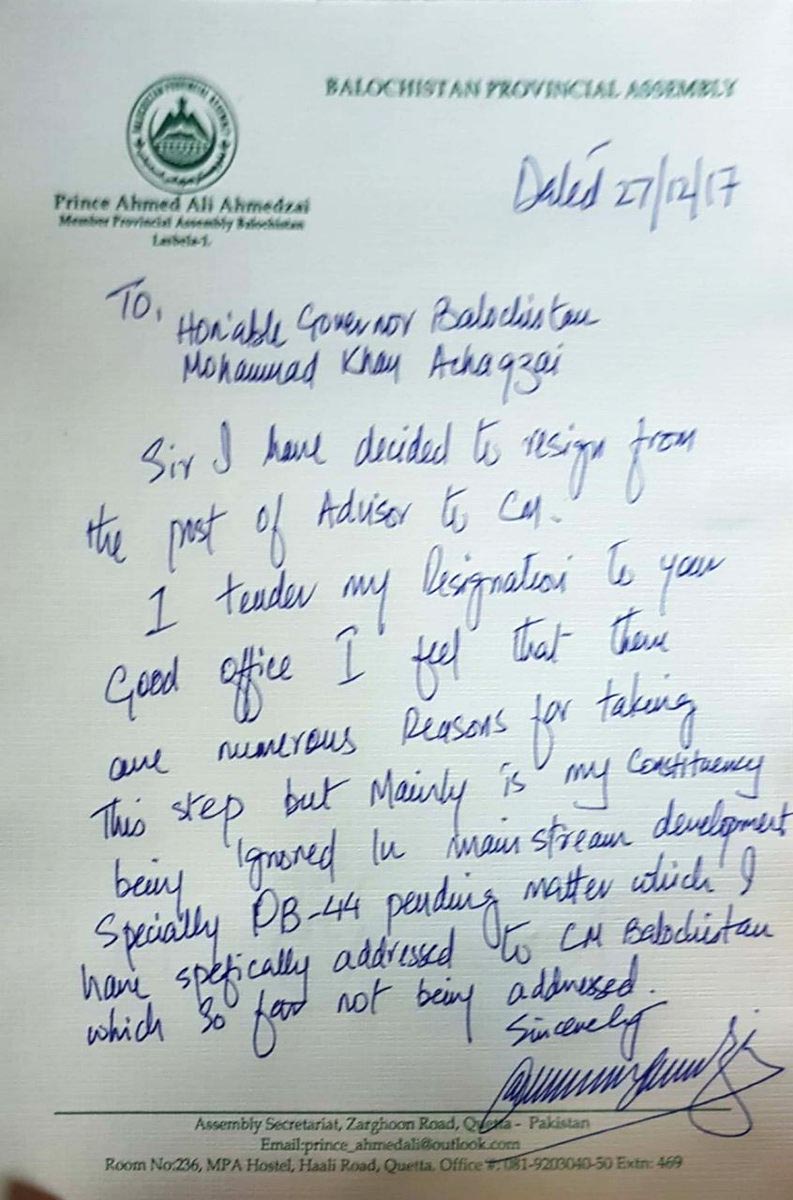 BALOCHISTAN PROVINCIAL ASSEMBLY
Prince Ahmed Ali Ahmedzai
Member Provincial Assembly Balochistan
Lasbela-1.
Dated 27/12/17
To,
Hon'able Governor Balochistan
Mohammad Khan Achagzai
Sir I have decided to resign from
the post of Advisor to CM.
I tender my Resignation to your
Good office I feel that there
are numerous Reasons for taking
This step but Mainly is my Constituency
being Ignored In main stream development
Specially PB-44 pending matter which I
have spefically addressed to CM Balochistan
which So far not being addressed.
Sincerely
Assembly Secretariat, Zarghoon Road, Quetta - Pakistan
Email:prince_ahmedali@outlook.com
Room No:236, MPA Hostel, Haali Road, Quetta. Office #: 081-9203040-50 Extn: 469